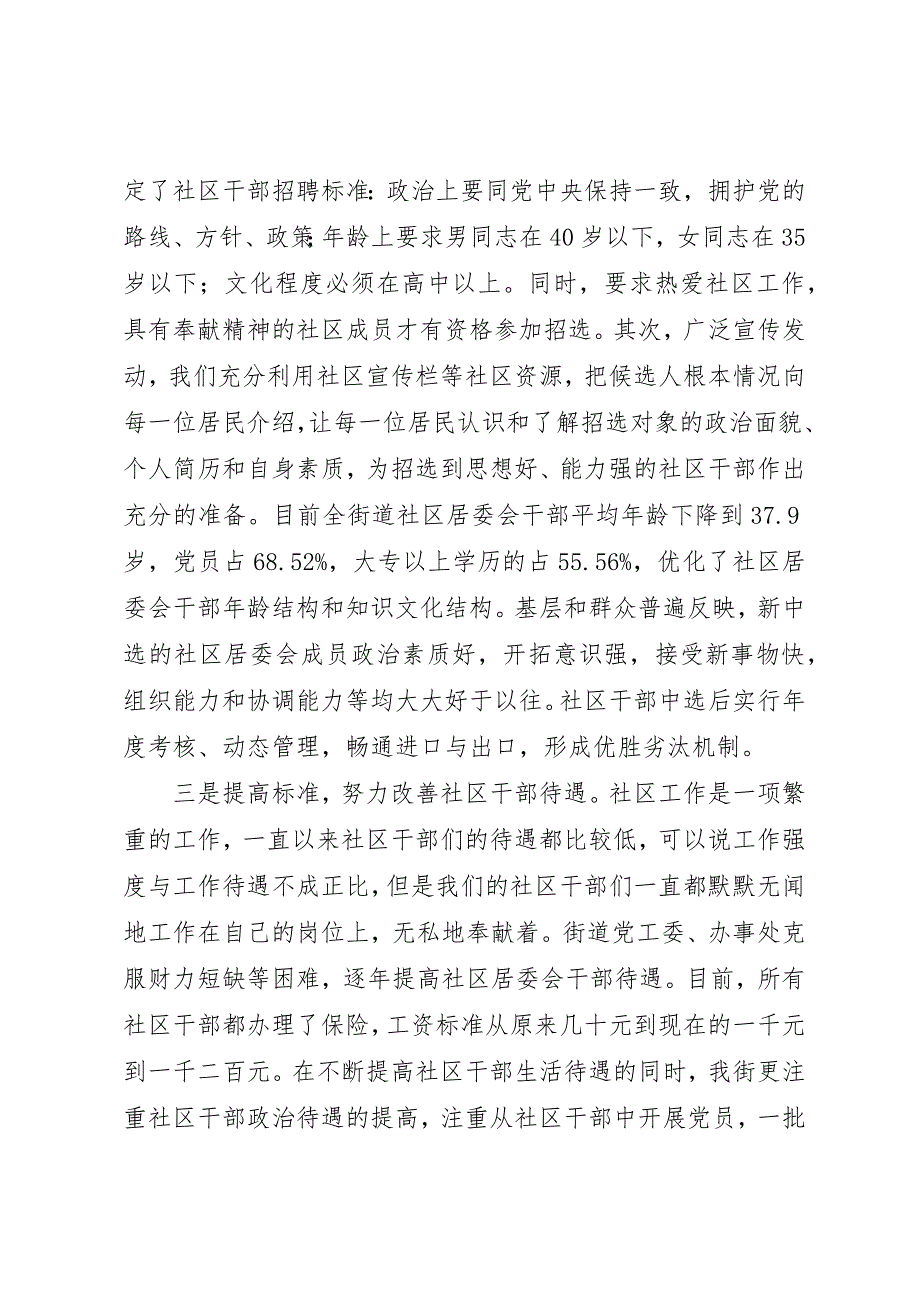 定了社区干部招聘标准：政治上要同党中央保持一致，拥护党的
路线、方针、政策；年龄上要求男同志在 40 岁以下，女同志在 35
岁以下；文化程度必须在高中以上。同时，要求热爱社区工作，
具有奉献精神的社区成员才有资格参加招选。其次，广泛宣传发
动，我们充分利用社区宣传栏等社区资源，把候选人根本情况向
每一位居民介绍，让每一位居民认识和了解招选对象的政治面貌、
个人简历和自身素质，为招选到思想好、能力强的社区干部作出
充分的准备。目前全街道社区居委会干部平均年龄下降到 37.9
岁，党员占 68.52%，大专以上学历的占 55.56%，优化了社区居
委会干部年龄结构和知识文化结构。基层和群众普遍反映，新中
选的社区居委会成员政治素质好，开拓意识强，接受新事物快，
组织能力和协调能力等均大大好于以往。社区干部中选后实行年
度考核、动态管理，畅通进口与出口，形成优胜劣汰机制。
三是提高标准，努力改善社区干部待遇。社区工作是一项繁
重的工作，一直以来社区干部们的待遇都比较低，可以说工作强
度与工作待遇不成正比，但是我们的社区干部们一直都默默无闻
地工作在自己的岗位上，无私地奉献着。街道党工委、办事处克
服财力短缺等困难，逐年提高社区居委会干部待遇。目前，所有
社区干部都办理了保险，工资标准从原来几十元到现在的一千元
到一千二百元。在不断提高社区干部生活待遇的同时，我街更注
重社区干部政治待遇的提高，注重从社区干部中开展党员，一批